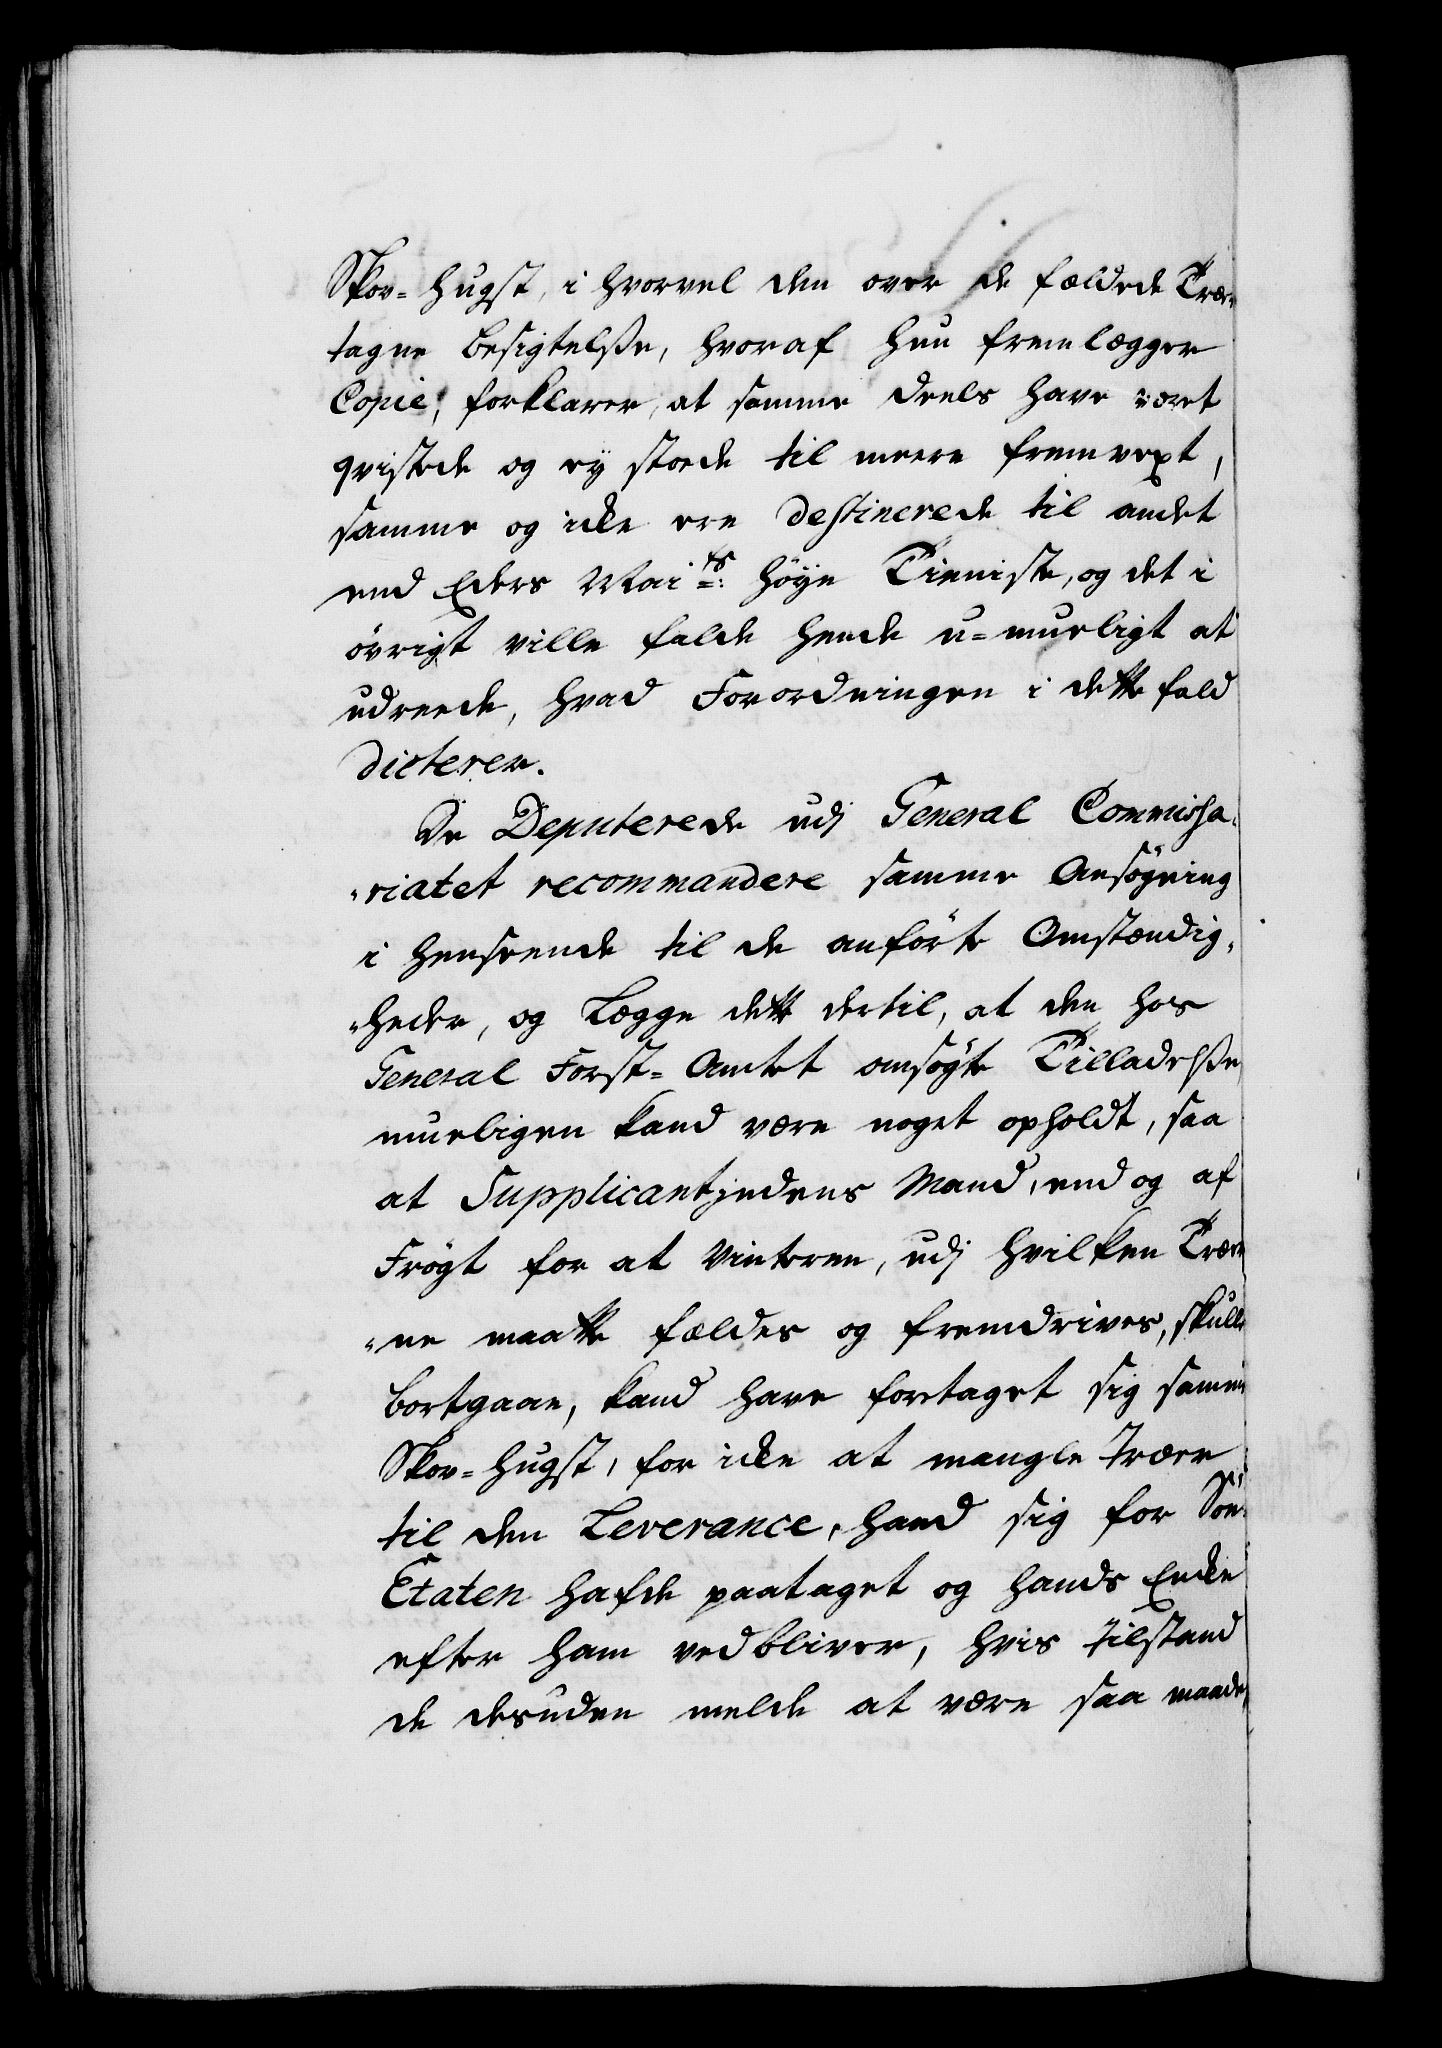 Skov-Hugst, i hvorvel den over de fældede Træer
tagne Besigtelsse, hvoraf hun fremlægger
Copie, forklarer, at samme deels have været
qvistede og ey stoede til meere fremvext,
samme og icke ere destinerede til andet
end Eders Mai:ts Høye Tieniste, og det i
øvrigt ville falde hende u-mueligt at
udreede, hvad Forordningen i dette fald
dicterer.
De Deputerede udj General Commissa-
-riatet recommandere samme Ansøgning
i henseende til de anførte Omstændig-
-heder, og Lægge dette dertil, at den hos
General Forst-Amtet ansøgte Tilladelsse
mueligen kand være noget opholdt, saa
at Supplicantjndens Mand, end og af
Frøgt for at Vinteren, udj hvilken Træer
-ne maatte fældes og fremdrives, skulle
bortgaae, kand have foretaget sig samme
Skov-Hugst, for icke at mangle Træer
til den Leverance, hand sig for Søe-
Etaten hafde paataget og hands Encke
efter ham vedbliver, hvis tilstand
de desuden melde at være saa maade,